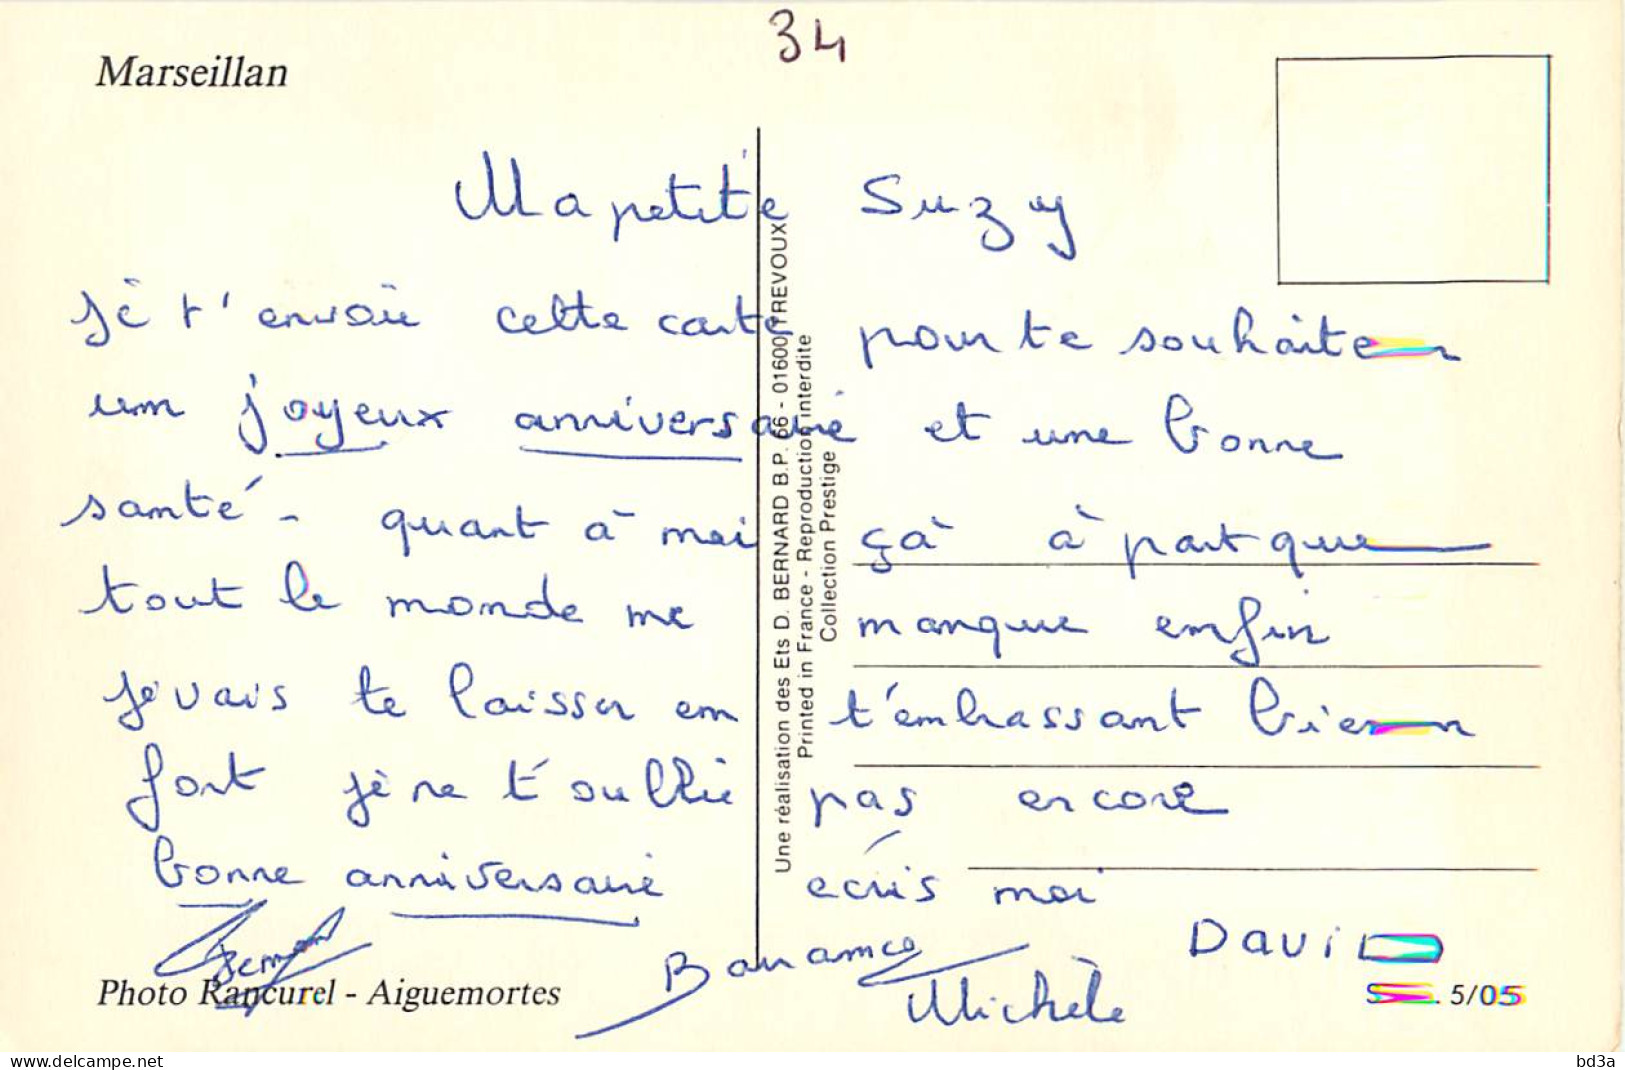 34
Marseillan
Ma petite Suzy
je t'envoie cette carte pour te souhaiter
un joyeux anniversaire et une bonne
santé - quant à moi çà à part que
tout le monde me manque enfin
je vais te laisser en t'embrassant bien
fort je ne t'oublie pas encore
bonne anniversaire ecris moi
David
Michèle
Photo Rancurel - Aiguemortes
5/05
Une réalisation des Ets D. BERNARD B.P. 66 - 01600 TREVOUX
Printed in France - Reproduction interdite
Collection Prestige
www.delcampe.net
bd3a